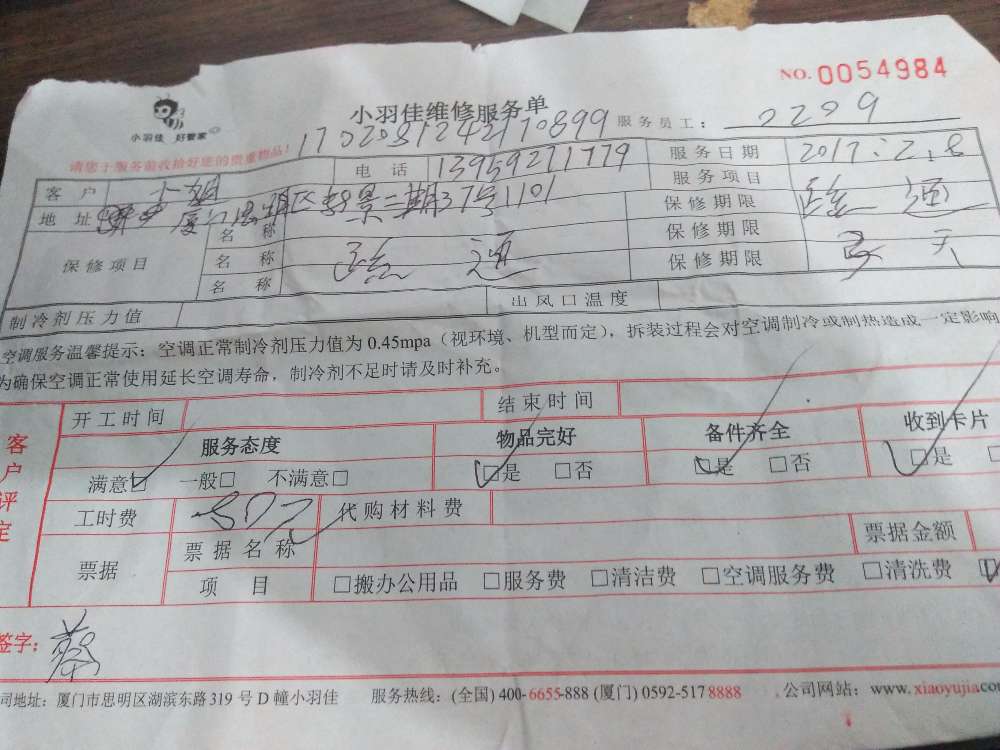 NO.0054984
小羽佳 好管家
小羽佳维修服务单
1702081242170899
服务员工： 2209
请您于服务前收拾好您的贵重物品！
客户 小姐 电话 13959271779 服务日期 2017.2.8
地址 厦门思明区 景二期37号1101 服务项目 疏通
保修项目 名称 保修期限
名称 疏通 保修期限 天
名称 保修期限
制冷剂压力值 出风口温度
空调服务温馨提示：空调正常制冷剂压力值为 0.45mpa（视环境、机型而定），拆装过程会对空调制冷或制热造成一定影响
为确保空调正常使用延长空调寿命，制冷剂不足时请及时补充。
客户评定
开工时间 结束时间
服务态度 物品完好 备件齐全 收到卡片
满意□ 一般□ 不满意□ □是 □否 □是 □否 □是
工时费 80元 代购材料费
票据 票据名称 票据金额
项目 □搬办公用品 □服务费 □清洁费 □空调服务费 □清洗费
签字： 蔡
司地址：厦门市思明区湖滨东路 319 号 D 幢小羽佳 服务热线：(全国) 400-6655-888 (厦门) 0592-517 8888 公司网站：www.xiaoyujia.co